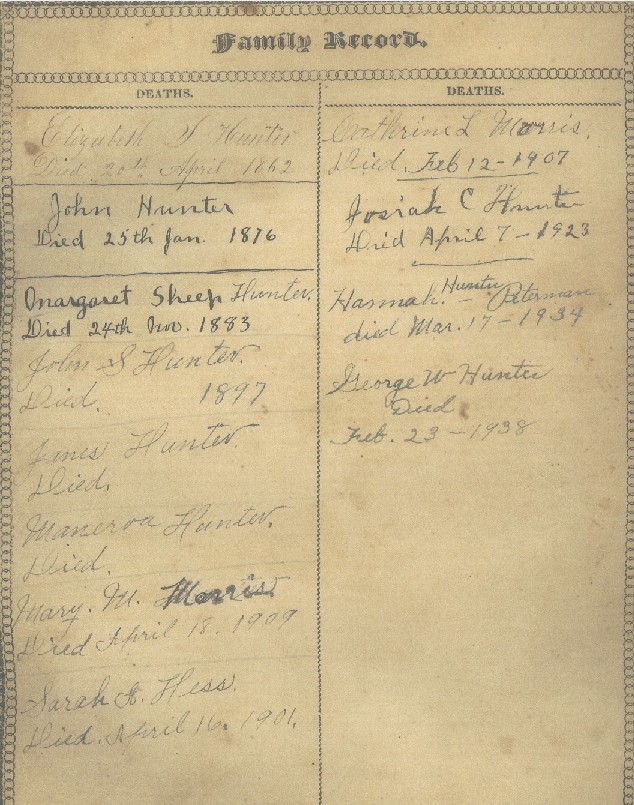 Family Record.
DEATHS.
Elizabeth S Hunter
Died 20th April 1862
John Hunter
Died 25th Jan. 1876
Margaret Sheep Hunter.
Died 24th Nov. 1883
John S Hunter.
Died. 1897
James Hunter.
Died.
Manerva Hunter.
Died.
Mary. M. Morris.
Died April 18. 1909
Sarah A. Hess.
Died. April 16. 1901.
DEATHS.
Cathrine L Morris.
Died. Feb 12-1907
Josiah C Hunter
Died April 7-1923
Hannah. Hunter - Peterman
died Mar. 17-1934
George W Hunter
Died
Feb. 23-1938